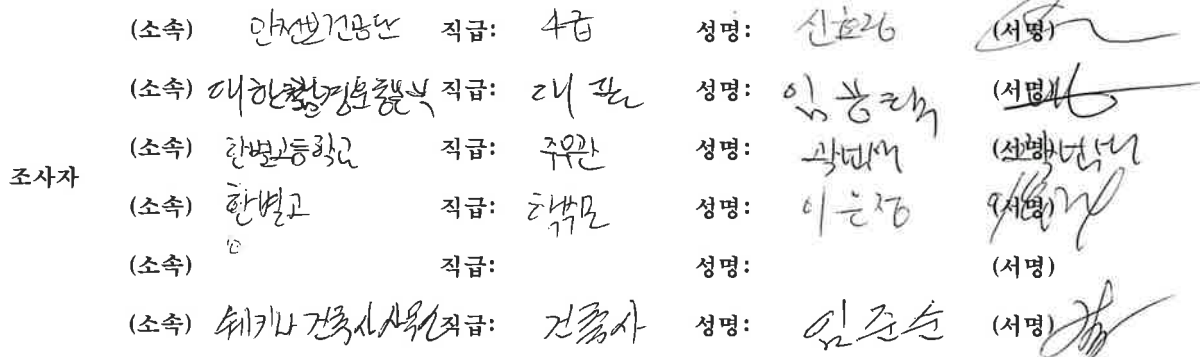 (소속) 안전보건공단 직급: 4급 성명: 신효 (서명)
(소속) 직급: 대표 성명: 임 (서명)
(소속) 한별고등학교 직급: 주무관 성명: (서명)
조사자
(소속) 한별고 직급: 학부모 성명: 이은정 (서명)
(소속) 직급: 성명: (서명)
(소속) 쉐키나 건축사사무소 직급: 건축사 성명: 임준순 (서명)